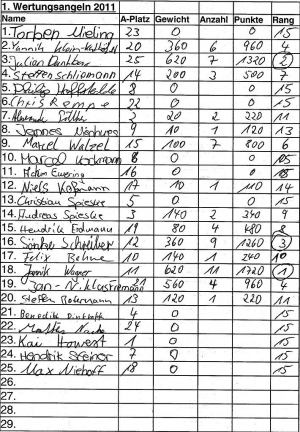 1. Wertungsangeln 2011
Name A-Platz Gewicht Anzahl Punkte Rang
1. Torben Mieling 23 0 0 15
2. Yannik 20 360 6 960 4
3. Julian 25 620 7 1320 2
4. Steffen Schliemann 14 200 3 500 7
5. Philip 8 0 0 15
6. Chris Rempe 22 0 0 15
7. Alexander 2 20 2 220 11
8. Jannes 9 10 1 120 13
9. Marcel Walzel 15 100 7 800 6
10. Marcel 6 0 0 15
11. 16 0 0 15
12. Niels 17 10 1 110 14
13. Christian Spieske 5 0 0 15
14. Andreas Spieske 3 140 2 340 9
15. Hendrik Erdmann 19 80 4 480 8
16. Schreiber 12 360 9 1260 3
17. Felix Behne 10 140 1 240 10
18. Jannik Wagner 11 620 11 1720 1
19. Jan-N. Klustriemann 21 560 4 960 4
20. Steffen 13 120 1 220 11
21. Benedikt 4 0 15
22. 24 0 15
23. Kai 1 0 15
24. Hendrik Steiner 7 0 15
25. Max Niehoff 18 0 15
26.
27.
28.
29.